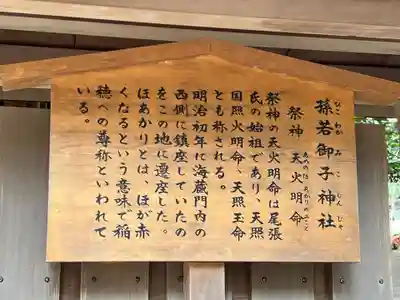 孫若御子神社
ひこわかみこじんじゃ
祭神 天火明命
あめのほあかりのみこと
祭神の天火明命は尾張
氏の始祖であり、天照
国照火明命、天照玉命
とも称される。
明治初年に海蔵門内の
西側に鎮座していたの
をこの地に遷座した。
ほあかりとは、ほが赤
くなるという意味で稲
穂への尊称といわれて
いる。